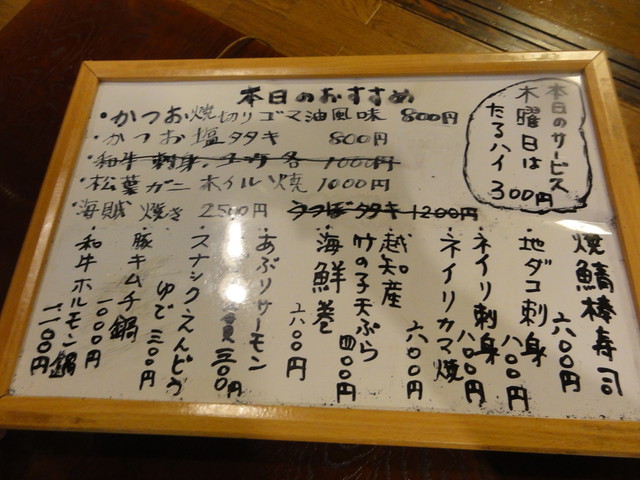 本日のおすすめ
・かつお焼切りゴマ油風味 800円
・かつお塩タタキ 800円
・和牛刺身 各 1000円
・松葉ガニ ホイル焼 1000円
・海賊焼き 2500円 うつぼタタキ 1200円
本日のサービス
木曜日は
たるハイ
300円
焼鯖棒寿司
六〇〇円
・地ダコ刺身
八〇〇円
・ネイリ刺身
八〇〇円
・ネイリカマ焼
六〇〇円
・越知産
竹の子天ぷら
四〇〇円
・海鮮巻
六〇〇円
・あぶりサーモン
貫 三〇〇円
・スナックえんどう
ゆで 三〇〇円
・豚キムチ鍋
一〇〇〇円
・和牛ホルモン鍋
一、一〇〇円